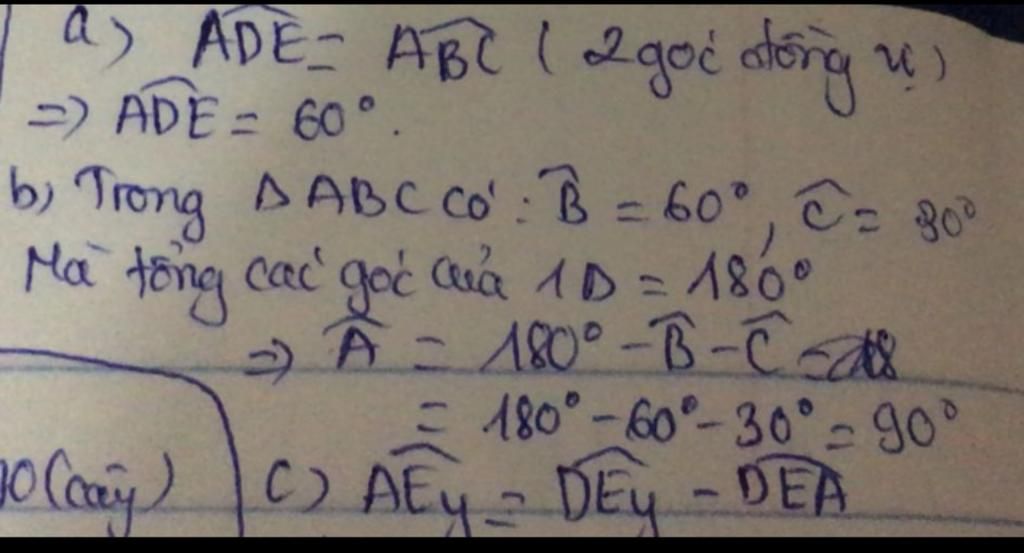 a) ADE = ABC ( 2 góc đồng vị )
=> ADE = 60°.
b) Trong Δ ABC có : B = 60°, C = 30°
Mà tổng các góc của 1Δ = 180°
=> A = 180° - B - C
= 180° - 60° - 30° = 90°
(cây)
c) AEy = DEy - DEA